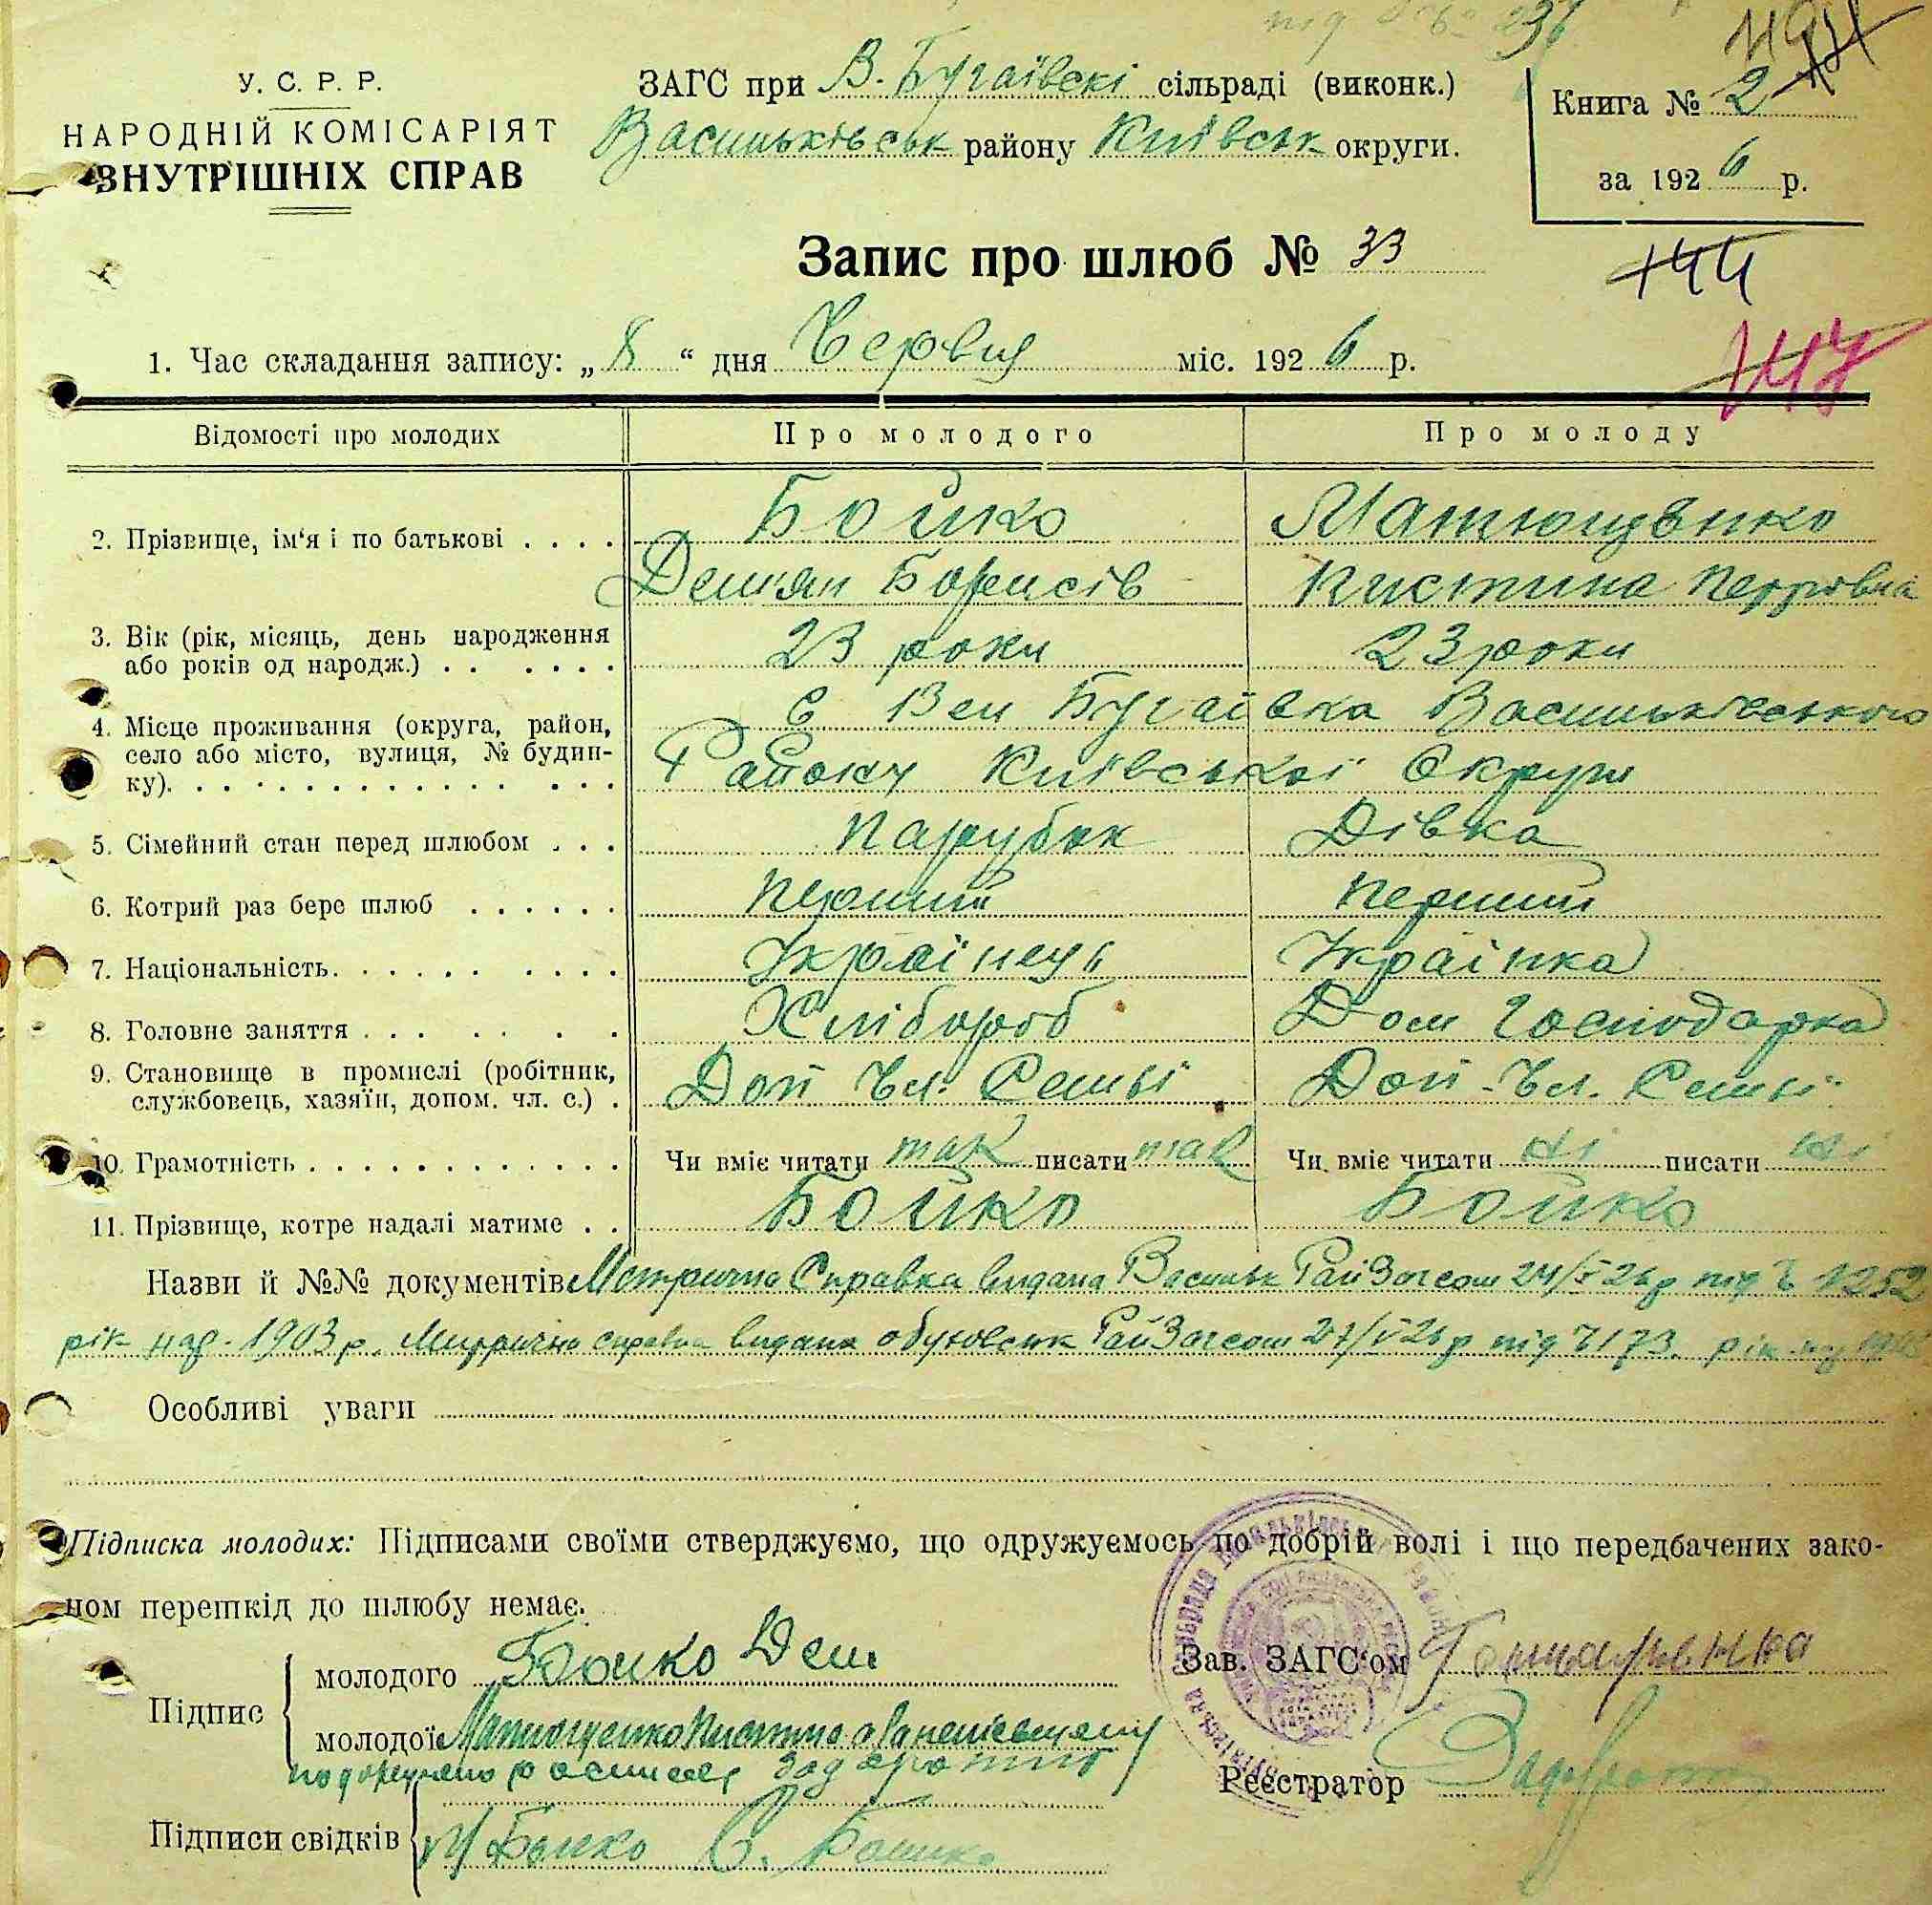 У. С. Р. Р.
НАРОДНІЙ КОМІСАРІЯТ
ВНУТРІШНІХ СПРАВ
ЗАГС при В. Бугаївскі сільраді (виконк.)
Васильківськ району Київськ округи.
Книга № 2
за 1926 р.
Запис про шлюб № 33
144
147
1. Час складання запису: „8“ дня Червня міс. 1926 р.
Відомості про молодих Про молодого Про молоду
2. Прізвище, ім'я і по батькові . . . . Бойко Матющенко
Демян Борисів Кистина Петровна
3. Вік (рік, місяць, день народження
або років од народж.) . . . . . . 23 роки 23 роки
4. Місце проживання (округа, район,
село або місто, вулиця, № будин-
ку). . . . . . . . . . . . . . . .
С Вел Бугаївка Васильківського
Району Київської Округи
5. Сімейний стан перед шлюбом . . . Парубок Дівка
6. Котрий раз бере шлюб . . . . . . Перший Перший
7. Національність. . . . . . . . . . Українець Українка
8. Головне заняття . . . . . . . Хлібороб Дом Господарка
9. Становище в промислі (робітник,
службовець, хазяїн, допом. чл. с.) . Доп Чл. Семьї Доп-Чл. Семьї
10. Грамотність . . . . . . . . . . . . . Чи вміє читати так писати так Чи вміє читати ні писати ні
11. Прізвище, котре надалі матиме . . Бойко Бойко
Назви й №№ документів Метрична Справка видана Васильк РайЗагсом 24/V 26 р під № 1252
рік нар. 1903 р. Метрична справка видана обуховськ РайЗагсом 27/V 26 р під № 173. рік
Особливі уваги
Підписка молодих: Підписами своїми стверджуємо, що одружуємось по добрій волі і що передбачених зако-
ном перешкід до шлюбу немає.
Підпис
молодого Бойко Дем
молодої Матющенко Кистина
Зав. ЗАГС'ом Гончаренко
Реєстратор
Підписи свідків Бойко Бойко